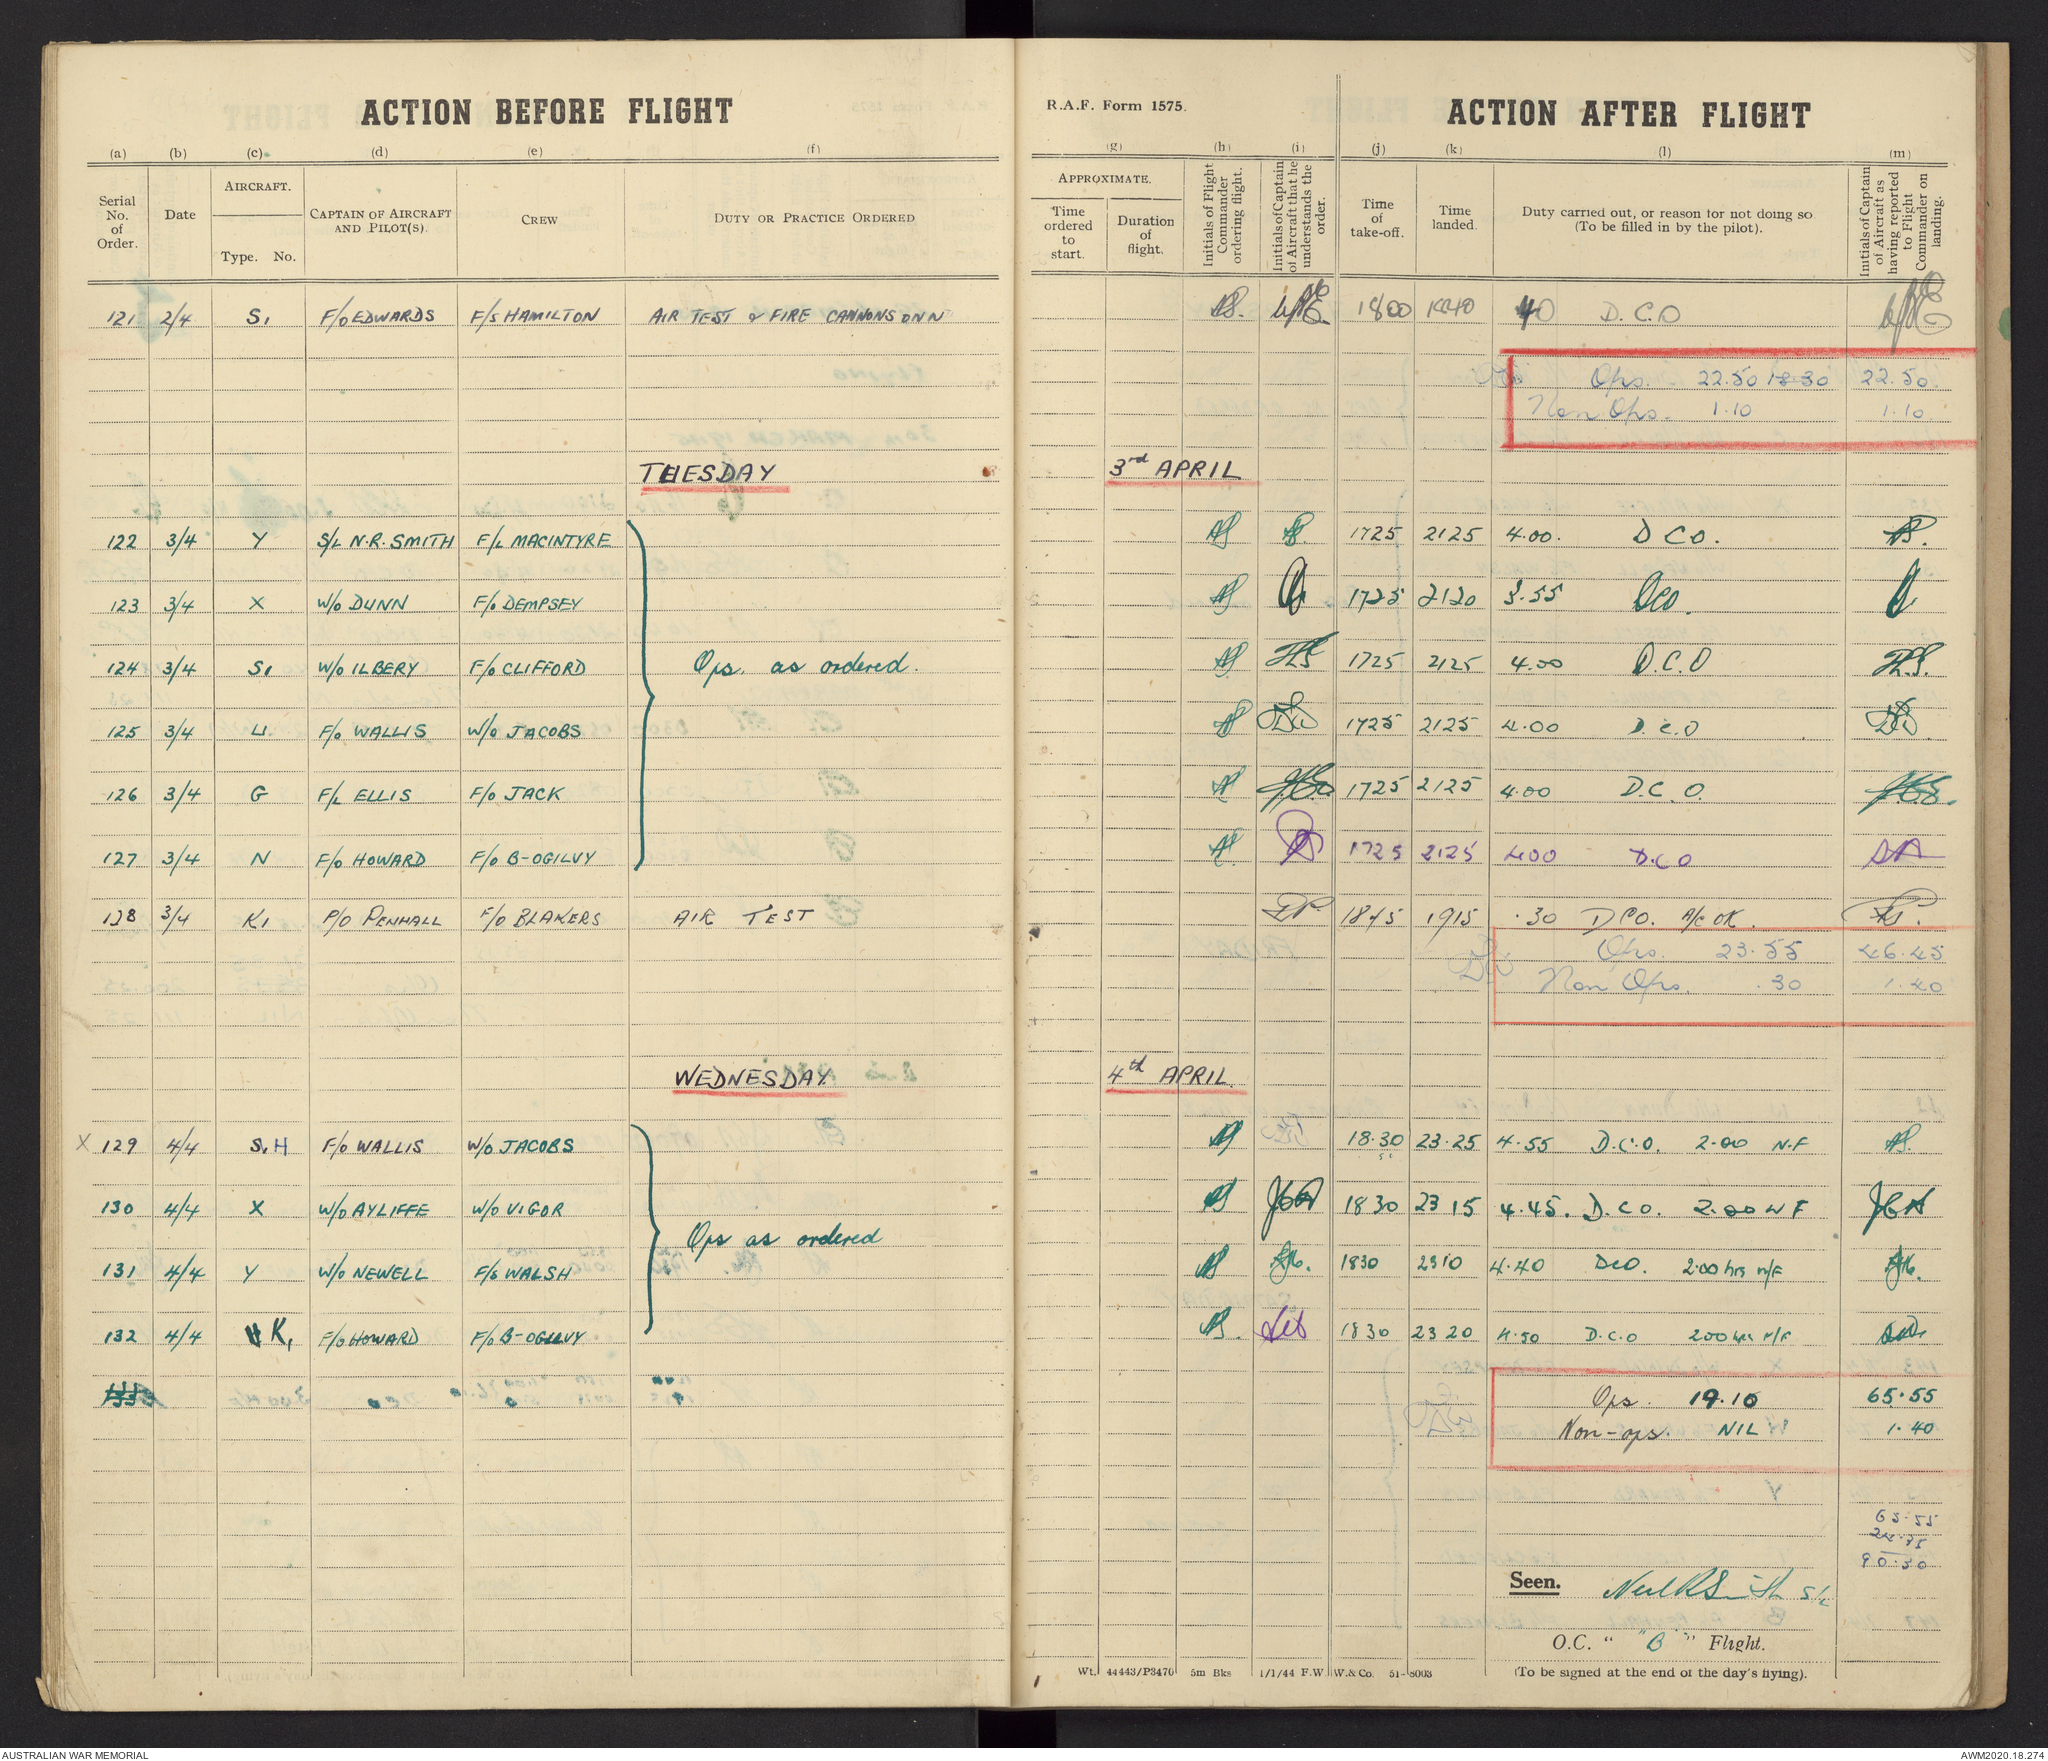 ACTION BEFORE FLIGHT
R.A.F. Form 1575.
ACTION AFTER FLIGHT
(a) (b) (c) (d) (e) (f) (g) (h) (i) (j) (k) (l) (m)
Serial No. of Order.
Date
AIRCRAFT.
Type. No.
CAPTAIN OF AIRCRAFT AND PILOT(S).
CREW
DUTY OR PRACTICE ORDERED
APPROXIMATE.
Time ordered to start.
Duration of flight.
Initials of Flight Commander ordering flight.
Initials of Captain of Aircraft that he understands the order.
Time of take-off.
Time landed.
Duty carried out, or reason for not doing so (To be filled in by the pilot).
Initials of Captain of Aircraft as having reported to Flight Commander on landing.
121 2/4 S1 F/O EDWARDS F/S HAMILTON AIR TEST & FIRE CANNONS DNN 1800 1840 40 D.C.O
Ops. 22.50 18.30 22.50
Non Ops. 1.10 1.10
TUESDAY 3rd APRIL
122 3/4 Y S/L N.R. SMITH F/L MACINTYRE 1725 2125 4.00. D CO.
123 3/4 X W/O DUNN F/O DEMPSEY 1725 2120 3.55 DCO.
124 3/4 S1 W/O ILBERY F/O CLIFFORD Ops. as ordered. 1725 2125 4.00 D.C.O
125 3/4 U F/O WALLIS W/O JACOBS 1725 2125 4.00 D.C.O
126 3/4 G F/L ELLIS F/O JACK 1725 2125 4.00 D.C.O.
127 3/4 N F/O HOWARD F/O B-OGILVY 1725 2125 400 D.C.O
128 3/4 K1 P/O PENHALL F/O BLAKERS AIR TEST 1845 1915 .30 DCO. A/C OK.
Ops. 23.55 46.45
Non Ops. .30 1.40
WEDNESDAY 4th APRIL
X 129 4/4 S, H F/O WALLIS W/O JACOBS 18.30 23.25 4.55 D.C.O. 2.00 N.F
130 4/4 X W/O AYLIFFE W/O VIGOR 1830 2315 4.45. D.CO. 2.00 N F JCA
Ops as ordered
131 4/4 Y W/O NEWELL F/S WALSH 1830 2310 4.40 DCO. 2.00 hrs N/F
132 4/4 K1 F/O HOWARD F/O B-OGILVY 1830 2320 4.50 D.C.O 200 hrs N/F
133
Ops. 19.10 65.55
Non-ops. NIL 1.40
65.55
24.35
90.30
Seen. Neil R Smith S/L
O.C. " "B" " Flight.
(To be signed at the end of the day's flying).
Wt. 44443/P3470 5m Bks 1/1/44 F.W W.& Co. 51-8003
AUSTRALIAN WAR MEMORIAL
AWM2020.18.274